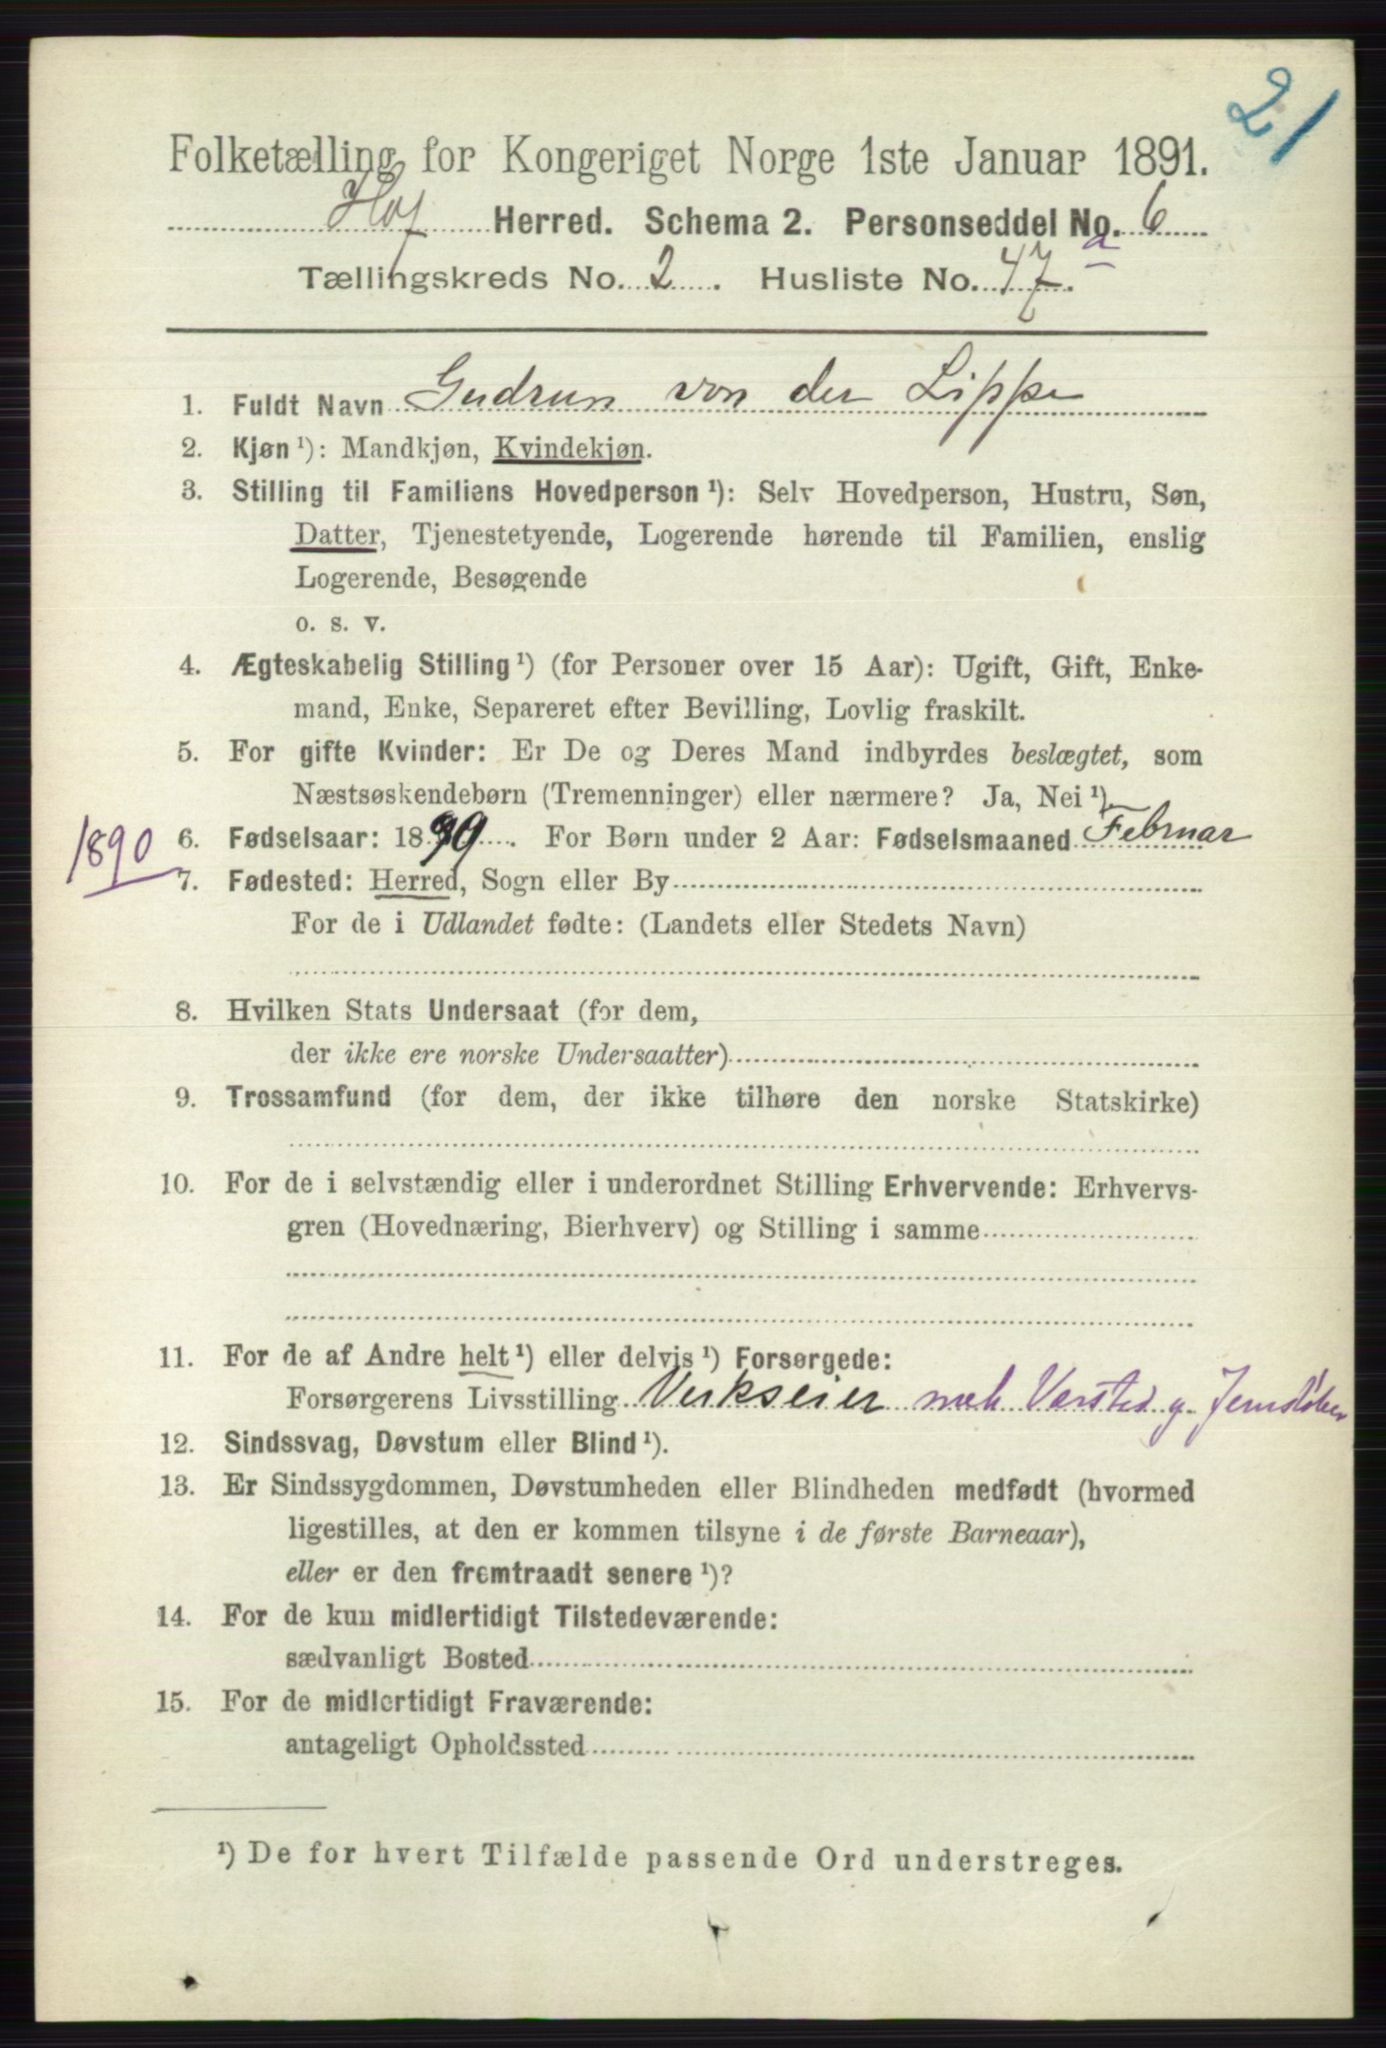 21
Folketælling for Kongeriget Norge 1ste Januar 1891.
Hof Herred. Schema 2. Personseddel No. 6
Tællingskreds No. 2. Husliste No. 47a.
1. Fuldt Navn Gudrun von der Lippe
2. Kjøn ¹): Mandkjøn, Kvindekjøn.
3. Stilling til Familiens Hovedperson ¹): Selv Hovedperson, Hustru, Søn,
Datter, Tjenestetyende, Logerende hørende til Familien, enslig
Logerende, Besøgende
o. s. v.
4. Ægteskabelig Stilling ¹) (for Personer over 15 Aar): Ugift, Gift, Enke-
mand, Enke, Separeret efter Bevilling, Lovlig fraskilt.
5. For gifte Kvinder: Er De og Deres Mand indbyrdes beslægtet, som
Næstsøskendebørn (Tremenninger) eller nærmere? Ja, Nei ¹).
1890 6. Fødselsaar: 1890. For Børn under 2 Aar: Fødselsmaaned Februar
7. Fødested: Herred, Sogn eller By
For de i Udlandet fødte: (Landets eller Stedets Navn)
8. Hvilken Stats Undersaat (for dem,
der ikke ere norske Undersaatter)
9. Trossamfund (for dem, der ikke tilhøre den norske Statskirke)
10. For de i selvstændig eller i underordnet Stilling Erhvervende: Erhvervs-
gren (Hovednæring, Bierhverv) og Stilling i samme
11. For de af Andre helt ¹) eller delvis ¹) Forsørgede:
Forsørgerens Livsstilling Verkseier mek Varsted g. Jernstøber
12. Sindssvag, Døvstum eller Blind ¹).
13. Er Sindssygdommen, Døvstumheden eller Blindheden medfødt (hvormed
ligestilles, at den er kommen tilsyne i de første Barneaar),
eller er den fremtraadt senere ¹)?
14. For de kun midlertidigt Tilstedeværende:
sædvanligt Bosted
15. For de midlertidigt Fraværende:
antageligt Opholdssted
¹) De for hvert Tilfælde passende Ord understreges.